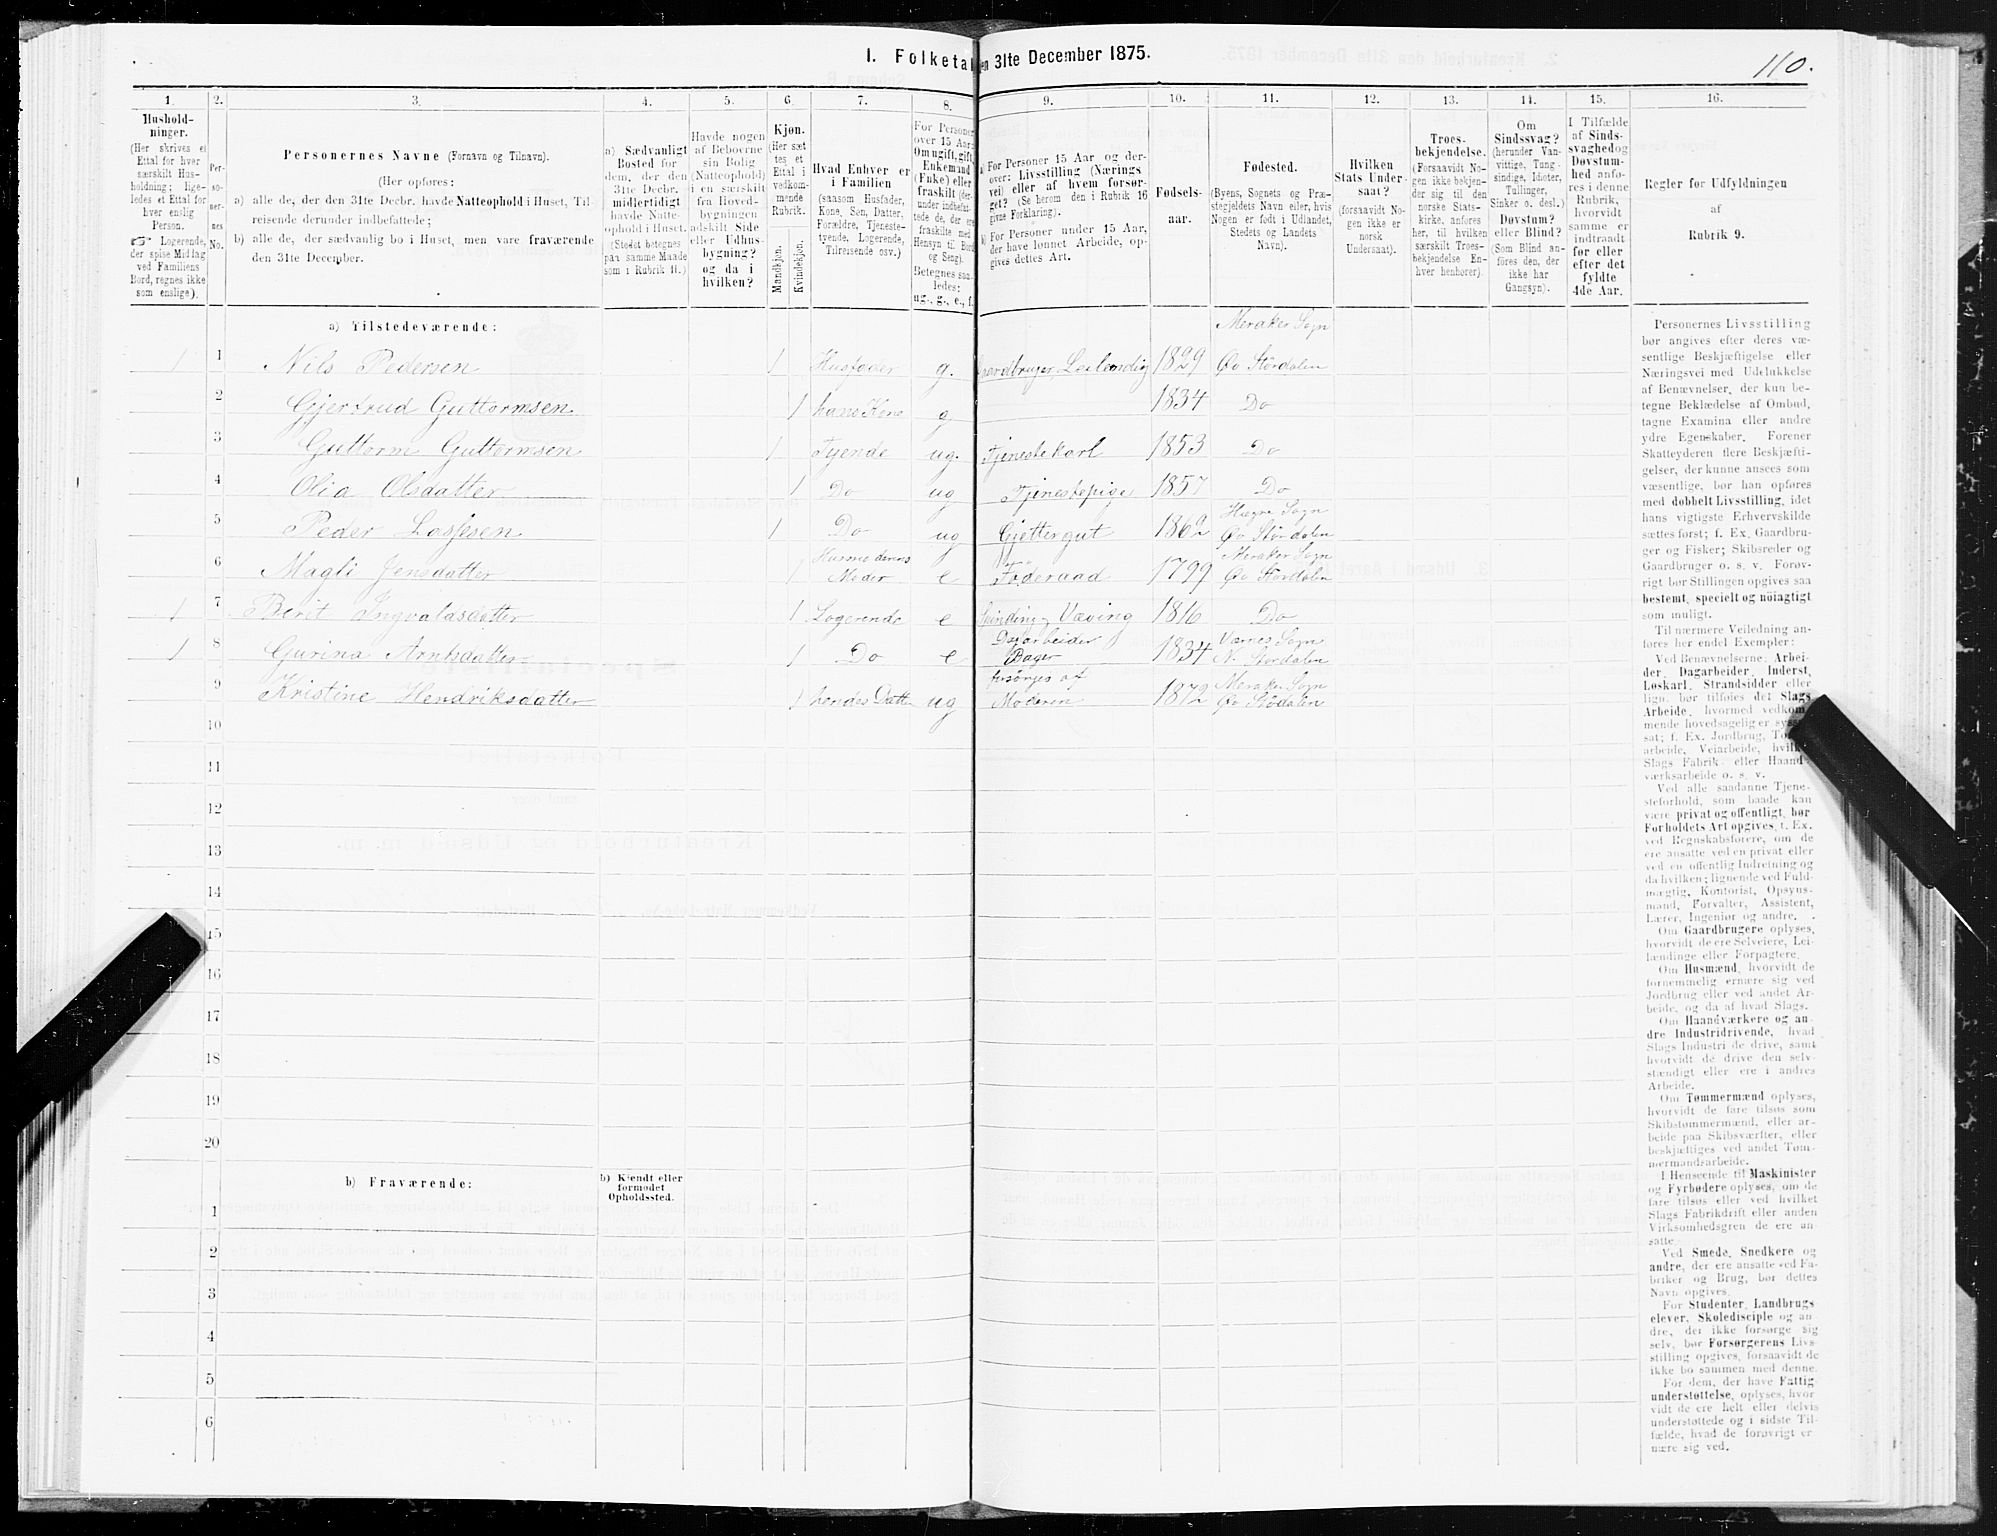 I. Folketal
en 31te December 1875.
110.
1.
2.
3.
4.
5.
6.
7.
8.
9.
10.
11.
12.
13.
14.
15.
16.
Hushold-
ninger.
(Her skrives et
Ettal for hver
særskilt Hus-
holdning; lige-
ledes et Ettal for
hver enslig
Person.
☞ Logerende,
der spise Middag
ved Familiens
Bord, regnes ikke
som enslige).
Per-
so-
ner-
nes
No.
Personernes Navne (Fornavn og Tilnavn).
(Her opføres:
a) alle de, der den 31te Decbr. havde Natteophold i Huset, Til-
reisende derunder indbefattede;
b) alle de, der sædvanlig bo i Huset, men vare fraværende
den 31te December.
a) Sædvanligt
Bosted for
dem, der den
31te Decbr.
midlertidigt
havde Natte-
ophold i Huset.
(Stedet betegnes
paa samme Maade
som i Rubrik 11.)
Havde nogen
af Beboerne
sin Bolig
(Natteophold)
i en særskilt
fra Hoved-
bygningen
adskilt Side
eller Udhus-
bygning?
og da i
hvilken?
Kjøn.
(Her sæt-
tes et
Ettal i
vedkom-
mende
Rubrik.
Mandkjøn.
Kvindekjøn.
Hvad Enhver er
i Familien
(saasom Husfader,
Kone, Søn, Datter,
Forældre, Tjeneste-
tyende, Logerende,
Tilreisende osv.)
For Personer
over 15 Aar:
Om ugift, gift,
Enkemand
(Enke) eller
fraskilt (der-
under indbefat-
tede de, der ere
fraskilte med
Hensyn til Bord
og Seng).
Betegnes saa-
ledes:
ug., g., e., f.
a) For Personer 15 Aar og der-
over: Livsstilling (Nærings-
vei) eller af hvem forsør-
get? (Se herom den i Rubrik 16
givne Forklaring).
b) For Personer under 15 Aar,
der have lønnet Arbeide, op-
gives dettes Art.
Fødsels-
aar.
Fødested.
(Byens, Sognets og Præ-
stegjeldets Navn eller, hvis
Nogen er født i Udlandet,
Stedets og Landets
Navn).
Hvilken
Stats Under-
saat?
(forsaavidt No-
gen ikke er
norsk
Undersaat).
Troes-
bekjendelse.
(Forsaavidt No-
gen ikke bekjen-
der sig til den
norske Stats-
kirke, anføres
her, til hvilken
særskilt Troes-
bekjendelse En-
hver henhører).
Om
Sindssvag?
(herunder Van-
vittige, Tung-
sindige, Idioter,
Tullinger,
Sinker o. desl.)
Døvstum?
eller Blind?
(Som Blind an-
føres den, der
ikke har
Gangsyn).
I Tilfælde
af Sinds-
svaghed og
Døvstum-
hed anfø-
res i denne
Rubrik,
hvorvidt
samme er
indtraadt
før eller
efter det
fyldte
4de Aar.
Regler for Udfyldningen
af
Rubrik 9.
a) Tilstedeværende:
Meraker Sogn
1 1 Nils Pedersen 1 Husfader g. Gaardbruger, Leilending 1829 Øv Stördalen
2 Gjertrud Guttormsen 1 hans Kone g 1834 Do
3 Guttorm Guttormsen 1 Tyende ug. Tjenestekarl 1853 Do
4 Olia Olsdatter 1 Do ug Tjenestepige 1857 Do
Hegre Sogn
5 Peder 1 Do ug Gjettergut 1862 Øv Stördalen
Meraker Sogn
6 Magli Jensdatter 1 Moder e Föderaad 1799 Øv Stördalen
1 7 Berit Ingvaldsdatter 1 Logerende e Spinding, Væving 1816 Do
Dagarbeider Værnes Sogn
1 8 Gurina Arntsdatter 1 Do e 1834 N. Stördalen
forsörges af Meraker Sogn
9 Kristine Hendriksdatter 1 hendes Datter ug Moderen 1872 Øv Stödalen
10
11
12
13
14
15
16
17
18
19
20
b) Fraværende:
b) Kjendt eller
formodet
Opholdssted.
1
2
3
4
5
6
Personernes Livsstilling
bør angives efter deres væ-
sentlige Beskjæftigelse eller
Næringsvei med Udelukkelse
af Benævnelser, der kun be-
tegne Beklædelse af Ombud,
tagne Examina eller andre
ydre Egenskaber. Forener
Skatteyderen flere Beskjæfti-
gelser, der kunne ansees som
væsentlige, bør han opføres
med dobbelt Livsstilling, idet
hans vigtigste Erhvervskilde
sættes først; f. Ex. Gaardbru-
ger og Fisker; Skibsreder og
Gaardbruger o. s. v. Forøv-
rigt bør Stillingen opgives saa
bestemt, specielt og nøiagtigt
som muligt.
Til nærmere Veiledning an-
føres her endel Exempler:
Ved Benævnelserne: Arbei-
der, Dagarbeider, Inderst,
Løskarl, Strandsidder eller
lign. bør tilføies det Slags
Arbeide, hvormed vedkom-
mende hovedsagelig er syssel-
sat; f. Ex. Jordbrug,
arbeide, Veiarbeide,
Slags Fabrik- eller Haand-
værksarbeide o. s. v.
Ved alle saadanne Tjene-
steforhold, som baade kan
være privat og offentligt, bør
Forholdets Art opgives, t. Ex.
ved Regnskabsførere, om de
ere ansatte ved en privat eller
ved en offentlig Indretning og
da hvilken; lignende ved Fuld-
mægtig, Kontorist, Opsyns-
mand, Forvalter, Assistent,
Lærer, Ingeniør og andre.
Om Gaardbrugere oplyses,
hvorvidt de ere Selveiere, Lei-
lændinge eller Forpagtere.
Om Husmænd, hvorvidt de
fornemmelig ernære sig ved
Jordbrug eller ved andet Ar-
beide, og da af hvad Slags.
Om Haandværkere og an-
dre Industridrivende, hvad
Slags Industri de drive, samt
hvorvidt de drive den selv-
stændigt eller ere i andres
Arbeide.
Om Tømmermænd oplyses,
hvorvidt de fare tilsøs som
Skibstømmermænd, eller ar-
beide paa Skibsværfter, eller
beskjæftiges ved andet Tøm-
mermandsarbeide.
I Henseende til Maskinister
og Fyrbødere oplyses, om de
fare tilsøs eller ved hvilket
Slags Fabrikdrift eller anden
Virksomhedsgren de ere an-
satte.
Ved Smede, Snedkere og
andre, der ere ansatte ved Fa-
briker og Brug, bør dettes
Navn opgives.
For Studenter, Landbrugs-
elever, Skoledisciple og an-
dre, der ikke forsørge sig
selv, bør Forsørgerens Livs-
stilling opgives, forsaavidt de
ikke bo sammen med denne.
For dem, der have Fattig-
understøttelse, oplyses, hvor-
vidt de ere helt eller delvis
understøttede og i sidste Til-
fælde, hvad de forøvrigt er-
nære sig ved.